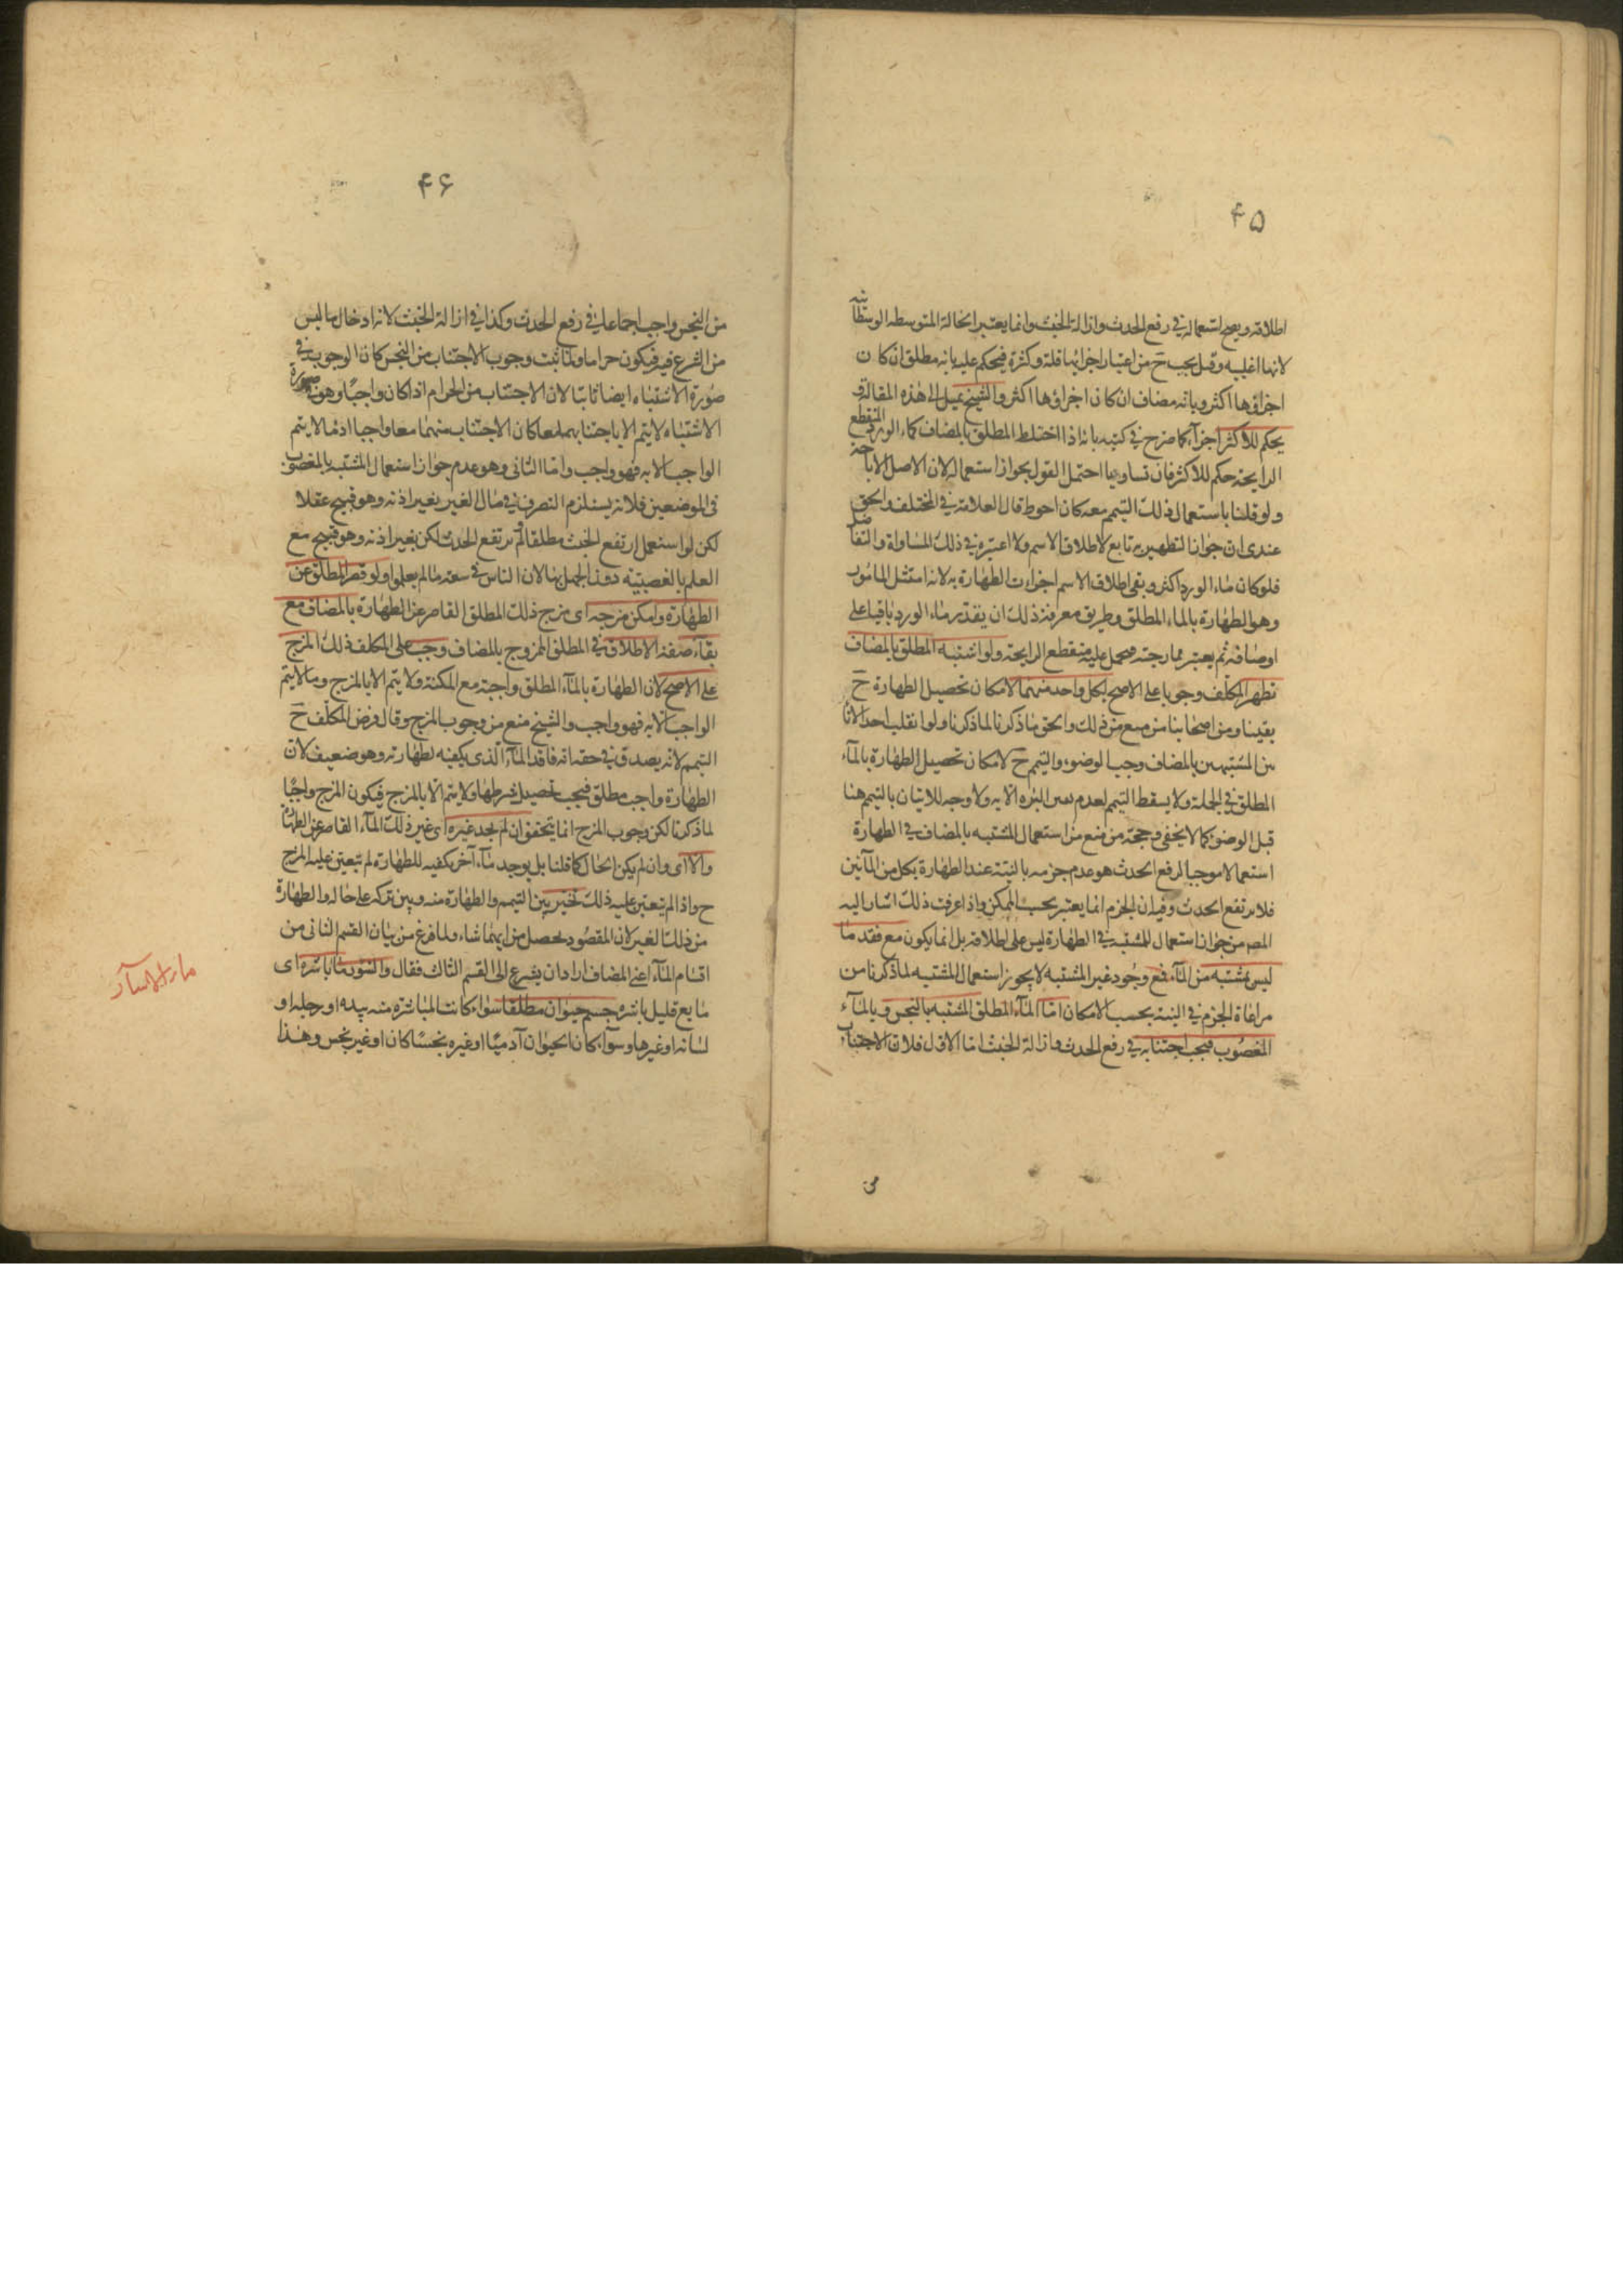 ۴۵
اطلاقه ويصح استعماله في رفع الحدث وازالة الخبث وانما يعتبر الحالة المتوسطه الوسطانية
لانها اغلبيه وقيل يجب ح من اعتبار اجزائها قلة وكثرة فيحكم عليه بانه مطلق ان كان
اجزاؤها اكثر وبانه مضاف ان كان اجزاؤها اكثر والشيخ يميل الى هذه المقالة و
يحكم للاكثر اجزآء كما صرح في كتبه بانه اذا اختلط المطلق بالمضاف كماء الورد المنقطع
الرايحة حكم للاكثر فان تساويا احتمل القول بجواز استعماله لان الاصل الاباحة
ولو قلنا باستعمال ذلك التيمم معه كان احوط قال العلامة في المختلف والحق
عندى ان جواز التطهير به تابع لاطلاق الاسم ولا اعتبره في ذلك المساواة والتفاضل
فلو كان ماء الورد اكثر وبقى اطلاق الاسم اجزاءت الطهارة به لانه امتثل المامور
وهو الطهارة بالماء المطلق وطريق معرفة ذلك ان يقدر ماء الورد باقيا على
اوصافه ثم يعتبر ممازجته فيحمل عليه منقطع الرايحة ولو اشتبه المطلق بالمضاف
تطهر المكلف وجوبا على الاصح بكل واحد منهما لامكان تحصيل الطهارة ح
يقينا ومن اصحابنا من منع من ذلك والحق ما ذكرنا لما ذكرنا ولو انقلب احد الانا
ئين المشتبهين بالمضاف وجب الوضوء والتيمم ح لامكان تحصيل الطهارة بالمآء
المطلق في الجملة ولا يسقط التيمم لعدم الا به ولا وجه للاتيان بالتيمم هنا
قبل الوضوء كما لا يخفى وحجة من منع من استعمال المشتبه بالمضاف في الطهارة
استعمالا موجبا لرفع الحدث هو عدم جزمه بالنية عند الطهارة بكل من المآئين
فلا يرتفع الحدث وفيه ان الجزم انما يعتبر بحسب الممكن واذا عرفت ذلك اشار اليه
المصم من جواز استعمال المشتبه في الطهارة ليس على اطلاقه بل انما يكون مع فقد ما
ليس بمشتبه من المآء فمع وجود غير المشتبه لا يجوز استعمال المشتبه لما ذكرنا من
مراعاة الجزم في النية بحسب الامكان اما المآء المطلق المشتبه بالنجس و بالمآء
المغصوب فيجب اجتنابه في رفع الحدث وازالة الخبث اما الاول فلان الاجتناب
من
۴۶
من النجس واجب اجماعا في رفع الحدث وكذا في ازالة الخبث لانه ادخال ما ليس
من الشرع فيه فيكون حراما ولما ثبت وجوب الاجتناب من النجس كان الوجوب في
صورة الاشتباه ايضا ثابتا لان الاجتناب من الحرام اذا كان واجبا وهو في صورة
الاشتباه لا يتم الا باجتنابهما معا كان الاجتناب منهما معا واجبا اذ ما لا يتم
الواجب الا به فهو واجب واما الثانى وهو عدم جواز استعمال المشتبه بالمغصوب
فى الموضعين فلانه يستلزم التصرف في مال الغير بغير اذنه وهو قبيح عقلا
لكن لو استعمل ارتفع الخبث مطلقا ولم يرتفع الحدث لكن بغير اذنه وهو قبيح مع
العلم بالغصبية دون الجهل بها لان الناس في سعة ما لم يعلموا ولو قصر المطلق عن
الطهارة وامكن مزجه اى مزج ذلك المطلق القاصر عن الطهارة بالمضاف مع
بقاء صفة الاطلاق في المطلق الممزوج بالمضاف وجب على المكلف ذلك المزج
على الاصح لان الطهارة بالمآء المطلق واجبة مع المكنة ولا يتم الا بالمزج وما لا يتم
الواجب الا به فهو واجب والشيخ منع من وجوب المزج وقال فرض المكلف ح
التيمم لانه يصدق في حقه انه فاقد المآء الذى يكفيه لطهارته وهو ضعيف لان
الطهارة واجب مطلق فيجب تحصيل شرطها ولا يتم الا بالمزج فيكون المزج واجبا
لما ذكرنا لكن وجوب المزج انما يتحقق ان لم يجد غيره اى غير ذلك المآء القاصر عن الطهارة
والا اى وان لم يكن الحال كما قلنا بل يوجد مآء آخر يكفيه للطهارة لم يتعين عليه المزج
ح واذا لم يتعين عليه ذلك تخير بين التيمم والطهارة منه وبين تركه على حاله والطهارة
من ذلك الغير لان المقصود يحصل من ايهما شاء ولما فرغ من بيان القسم الثانى من
اقسام المآء اعنى المضاف اراد ان يشرع الى القسم الثالث فقال والسؤر ما باشره اى
مايع قليل باشره جسم حيوان مطلقا سواء كانت المباشرة منه بيده او رجله او
لسانه او غيرها وسوآء كان الحيوان آدميا او غيره نجسا كان او غير نجس وهذا